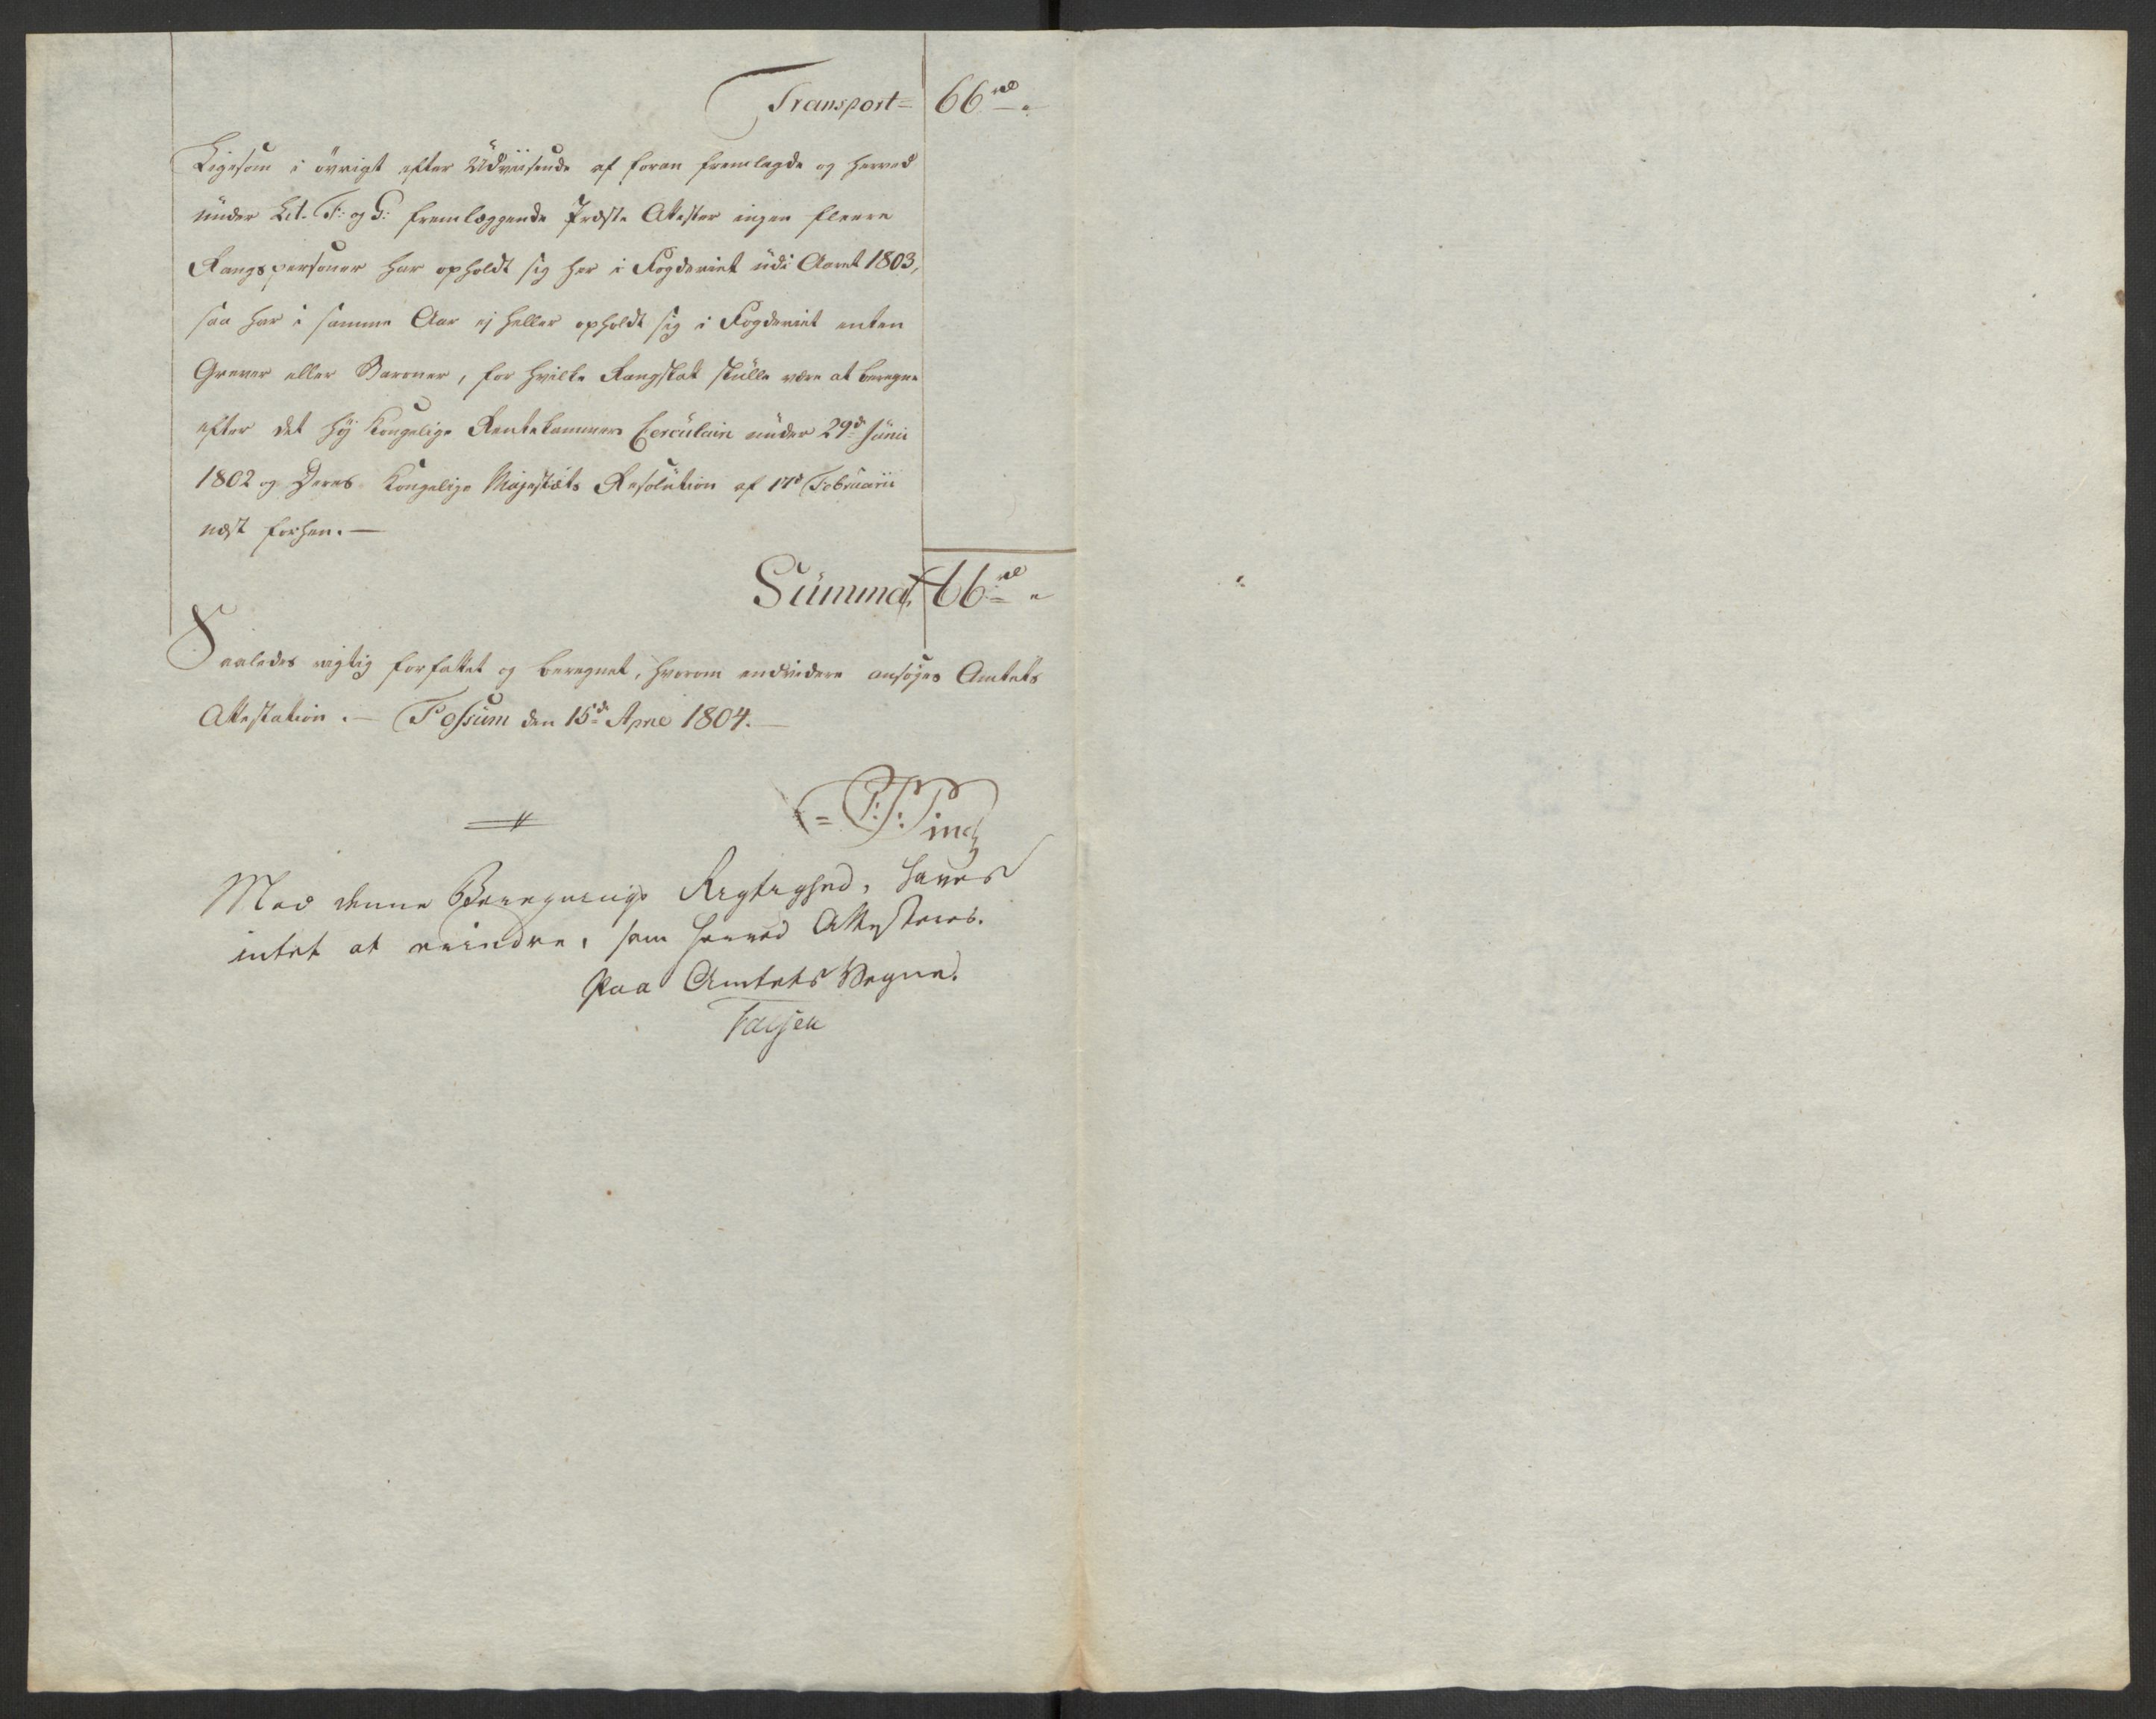 Transport= 66 rd -
Ligesom i øvrigt efter Udviisende af foran fremlagde og herved
under Lit. F: og G: fremlæggende Præste Attester ingen fleere
Rangspersoner har opholdt sig her i Fogderiet udi Aaret 1803,
saa har i samme Aar ej heller opholdt sig i Fogderiet enten
Grever eller Baroner, for hvilke Rangskat skulle være at beregne
efter det høj Kongelige Rentekammers Circulaire under 29d Junii
1802 og Deres Kongelige Majestæts Resolution af 17d Februarii
næst forhen. —
Summa 66 rd -
Saaledes rigtig forfattet og beregnet, hvorom endvidere ansøges Amtets
Attestation. — Fossum den 15d ApriL 1804. —
Mod denne Beregnings Rigtighed, haves
intet at erindre, som herved Attesteres.
Paa Amtets Vegne.
Falsen